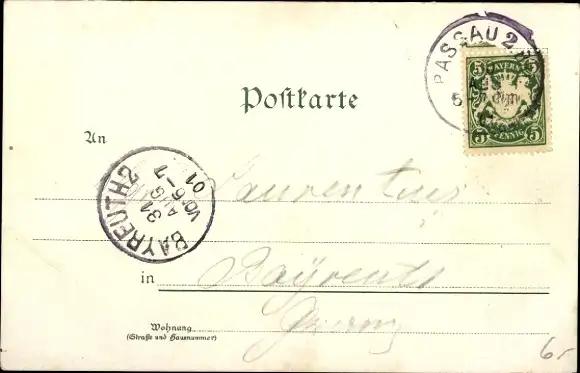 PASSAU 2
AUG
5 BAYERN 5
5 PFENNIG 5
Postkarte
An
BAYREUTH 2
31
AUG
V6-7
01
Laurentius
in Bayreuth
Wohnung
(Straße und Hausnummer)
6,-